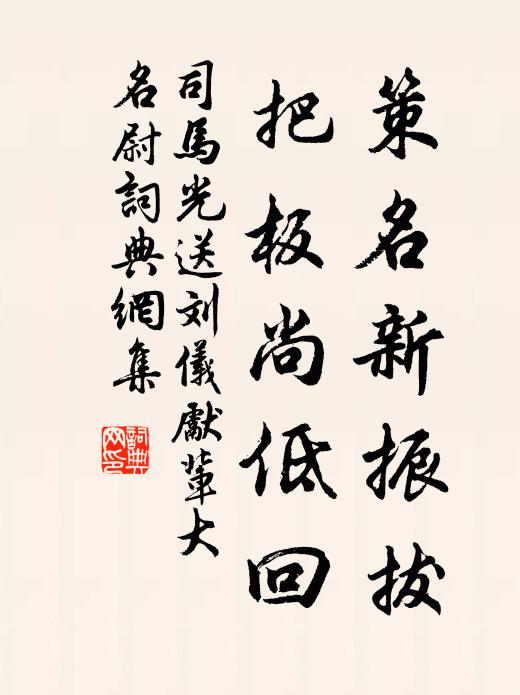 策名新振拔
把板尚低回
司馬光送刘儀獻輩大
名尉詞典網集
詞典
网印